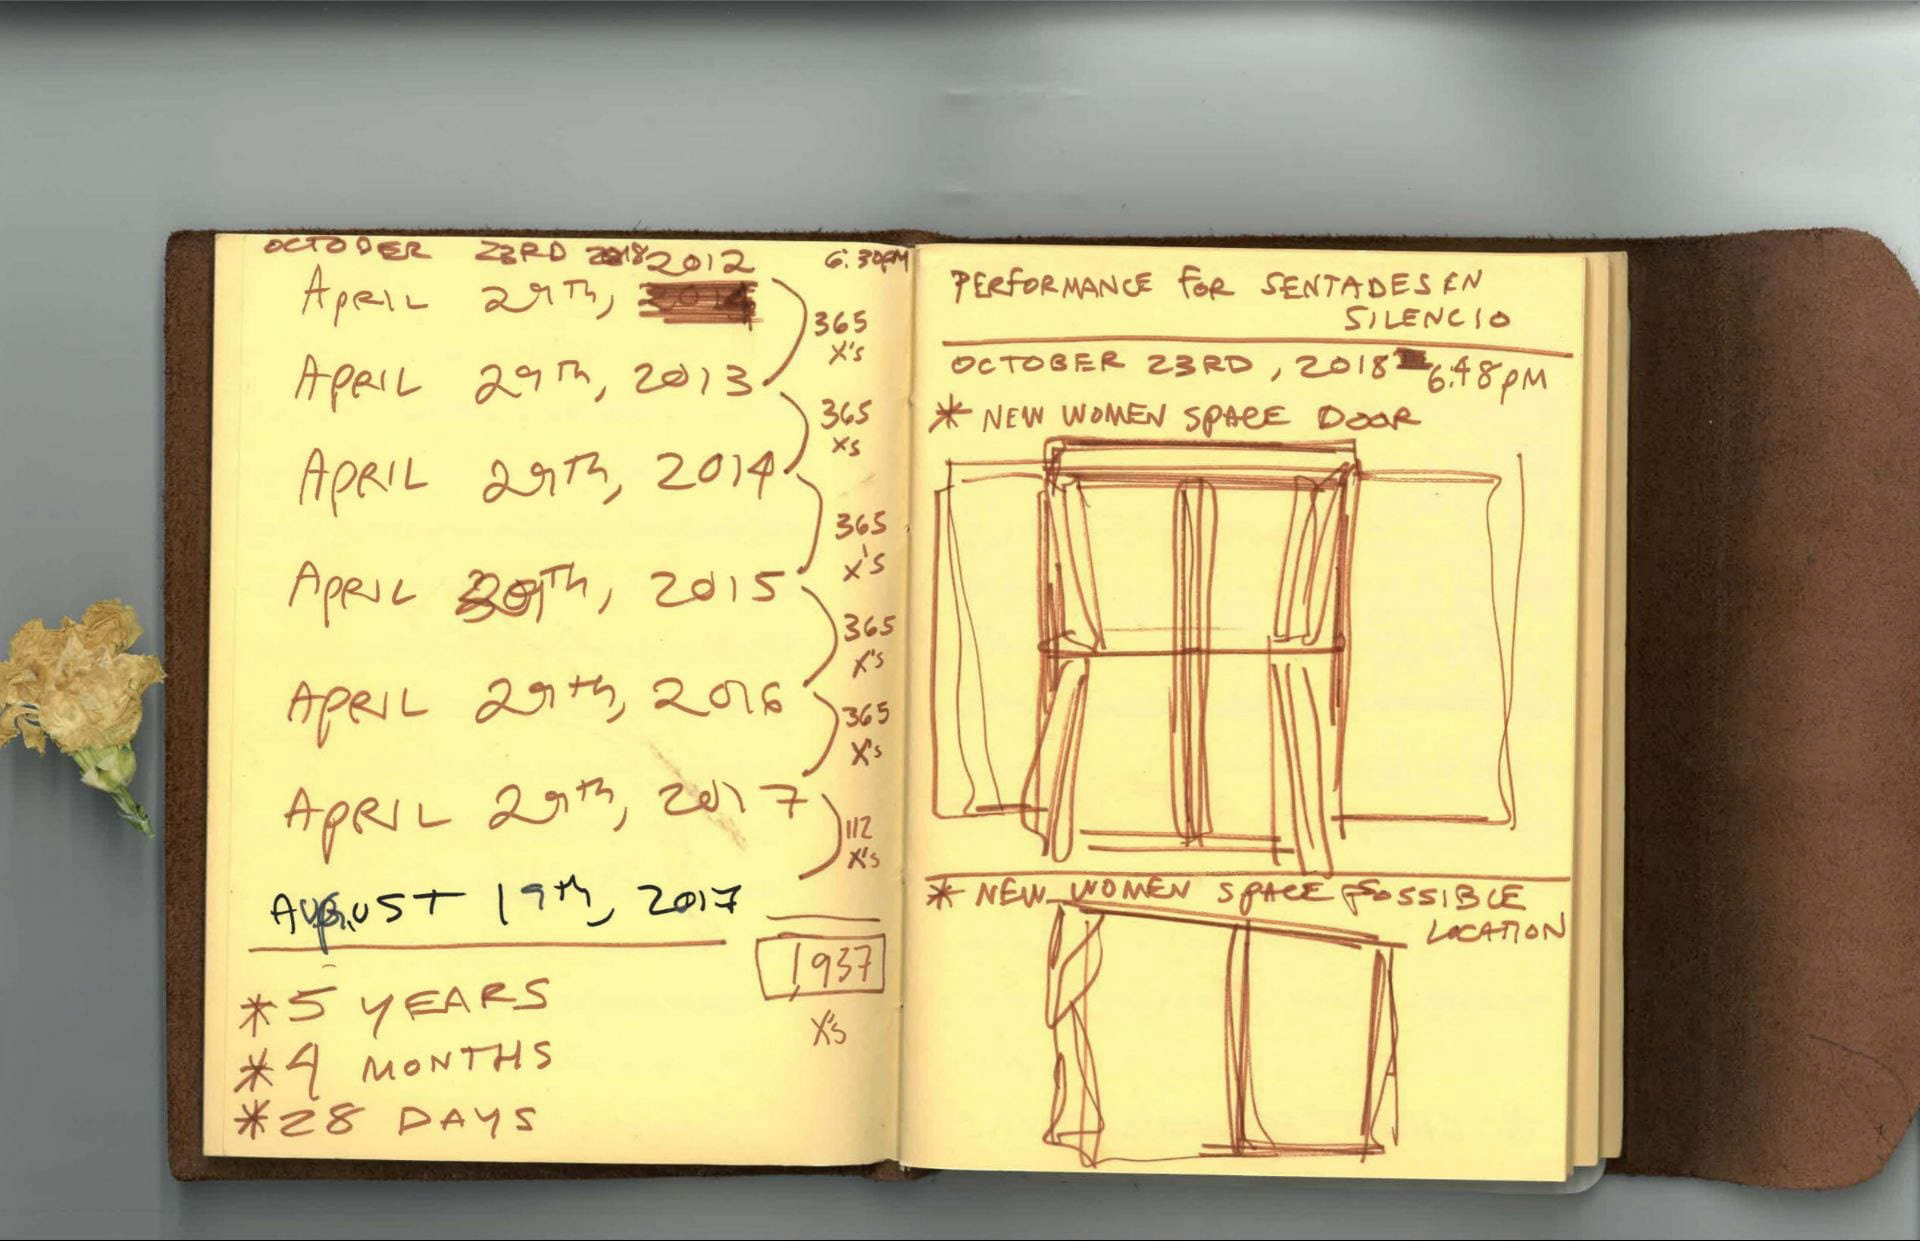 OCTOBER 23RD 2018 6:30PM
2012
APRIL 29TH,
365 X's
APRIL 29TH, 2013
365 Xs
APRIL 29TH, 2014
365 X's
APRIL TH, 2015
365 X's
APRIL 29TH, 2016
365 X's
APRIL 29TH, 2017
112 X's
AUGUST 19TH, 2017
1,937
X's
*5 YEARS
*4 MONTHS
*28 DAYS
PERFORMANCE FOR SENTADES EN
SILENCIO
OCTOBER 23RD, 2018 6:48PM
* NEW WOMEN SPACE DOOR
* NEW WOMEN SPACE POSSIBLE
LOCATION